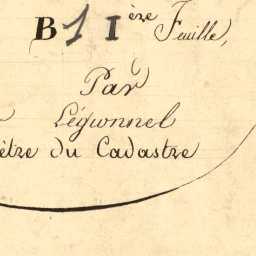 B 1 Ière Feuille,
Par
Légionnel
ètre du Cadastre